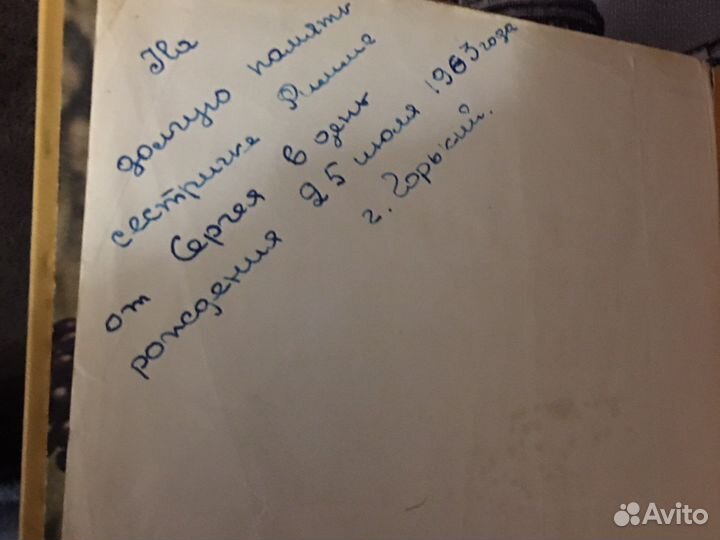 На
долгую память
сестричке Римме
от Сергея в день
рождения 25 июля 1963 года
г. Горький.
Avito